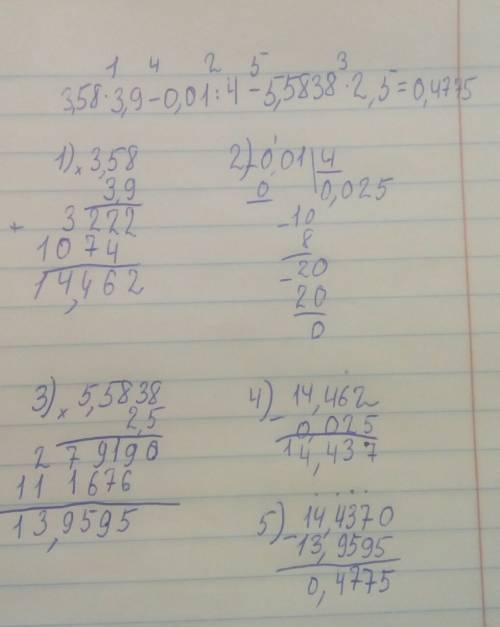 1 4 2 5 3
3,58·3,9-0,01:4-5,5838·2,5=0,4775
1) × 3,58
3,9
+ 3222
1074
14,462
2) - 0,01 | 4
0 0,025
-10
8
-20
20
0
3) × 5,5838
2,5
279190
111676
13,9595
4) - 14,462
0,025
14,437
5) - 14,4370
13,9595
0,4775